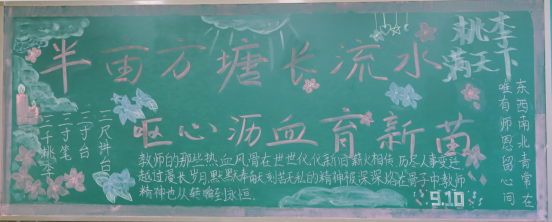 半亩方塘长流水
呕心沥血育新苗
桃李
满天下
三尺讲台
二寸台
三寸笔
三千桃李
教师的那些热血风
世世代代新旧薪火相传,历尽人事变迁
越过漫长岁月,默默奉献刻苦无私的精神很深深烙在骨子中教师
精神也从
到永恒.
东西南北青常在
唯有师恩留心间
9.10